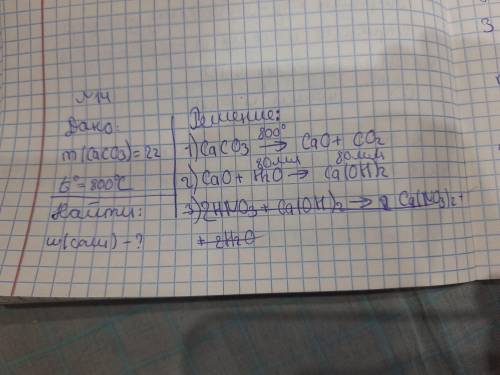 №14
Дано:
m(CaCO3)=2г
t°=800°C
Найти:
m(соли)-?
Решение:
1)CaCO3 800°→ CaO+ CO2
80мл 80мл
2)CaO+ H2O → Ca(OH)2
3)2HNO3+Ca(OH)2→ Ca(NO3)2+
+ 2H2O
3